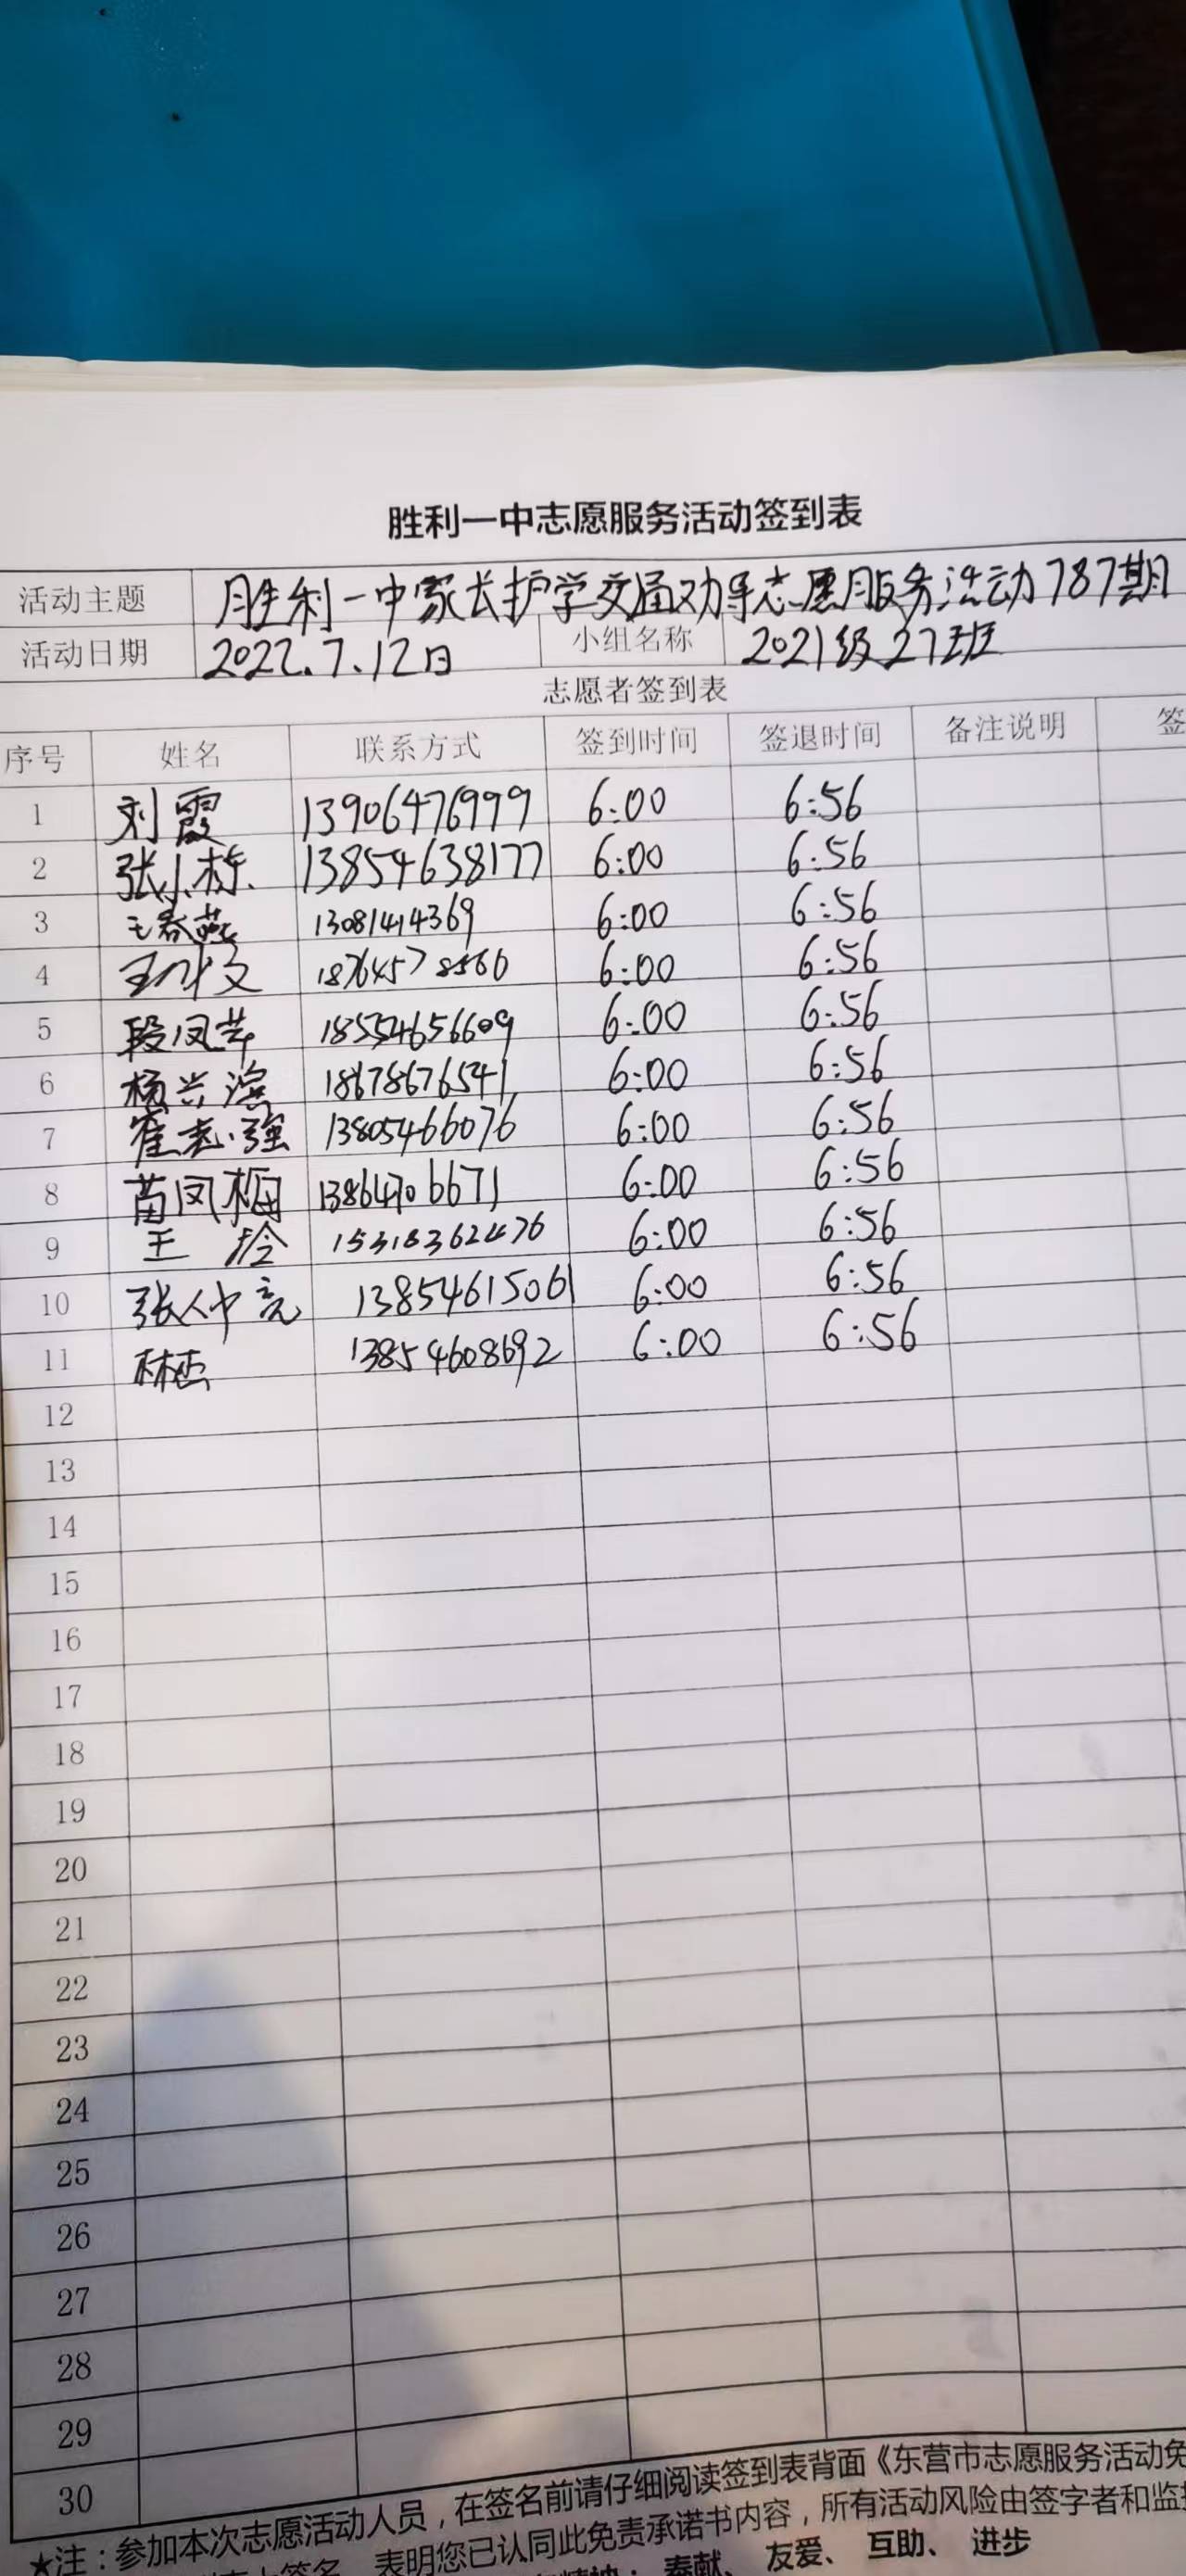 胜利一中志愿服务活动签到表
活动主题 胜利一中家长护学交通劝导志愿服务活动787期
活动日期 2022.7.12日 小组名称 2021级27班
志愿者签到表
序号 姓名 联系方式 签到时间 签退时间 备注说明 签
1 刘霞 13906476999 6:00 6:56
2 张小栋 13854638177 6:00 6:56
3 王春燕 13081414369 6:00 6:56
4 18764578560 6:00 6:56
5 段凤苹 18554656609 6:00 6:56
6 杨兴滨 18678676541 6:00 6:56
7 崔志强 13805466076 6:00 6:56
8 苗凤梅 13864706671 6:00 6:56
9 王玲 15318362476 6:00 6:56
10 张仲亮 13854615061 6:00 6:56
11 林杰 13854608692 6:00 6:56
12
13
14
15
16
17
18
19
20
21
22
23
24
25
26
27
28
29
30
★注：参加本次志愿活动人员，在签名前请仔细阅读签到表背面《东营市志愿服务活动免
表明您已认同此免责承诺书内容，所有活动风险由签字者和监护
精神：奉献、友爱、互助、进步